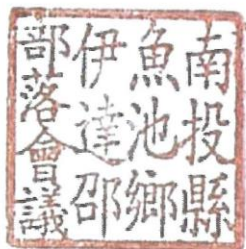 南投縣
魚池鄉
伊達邵
部落會議